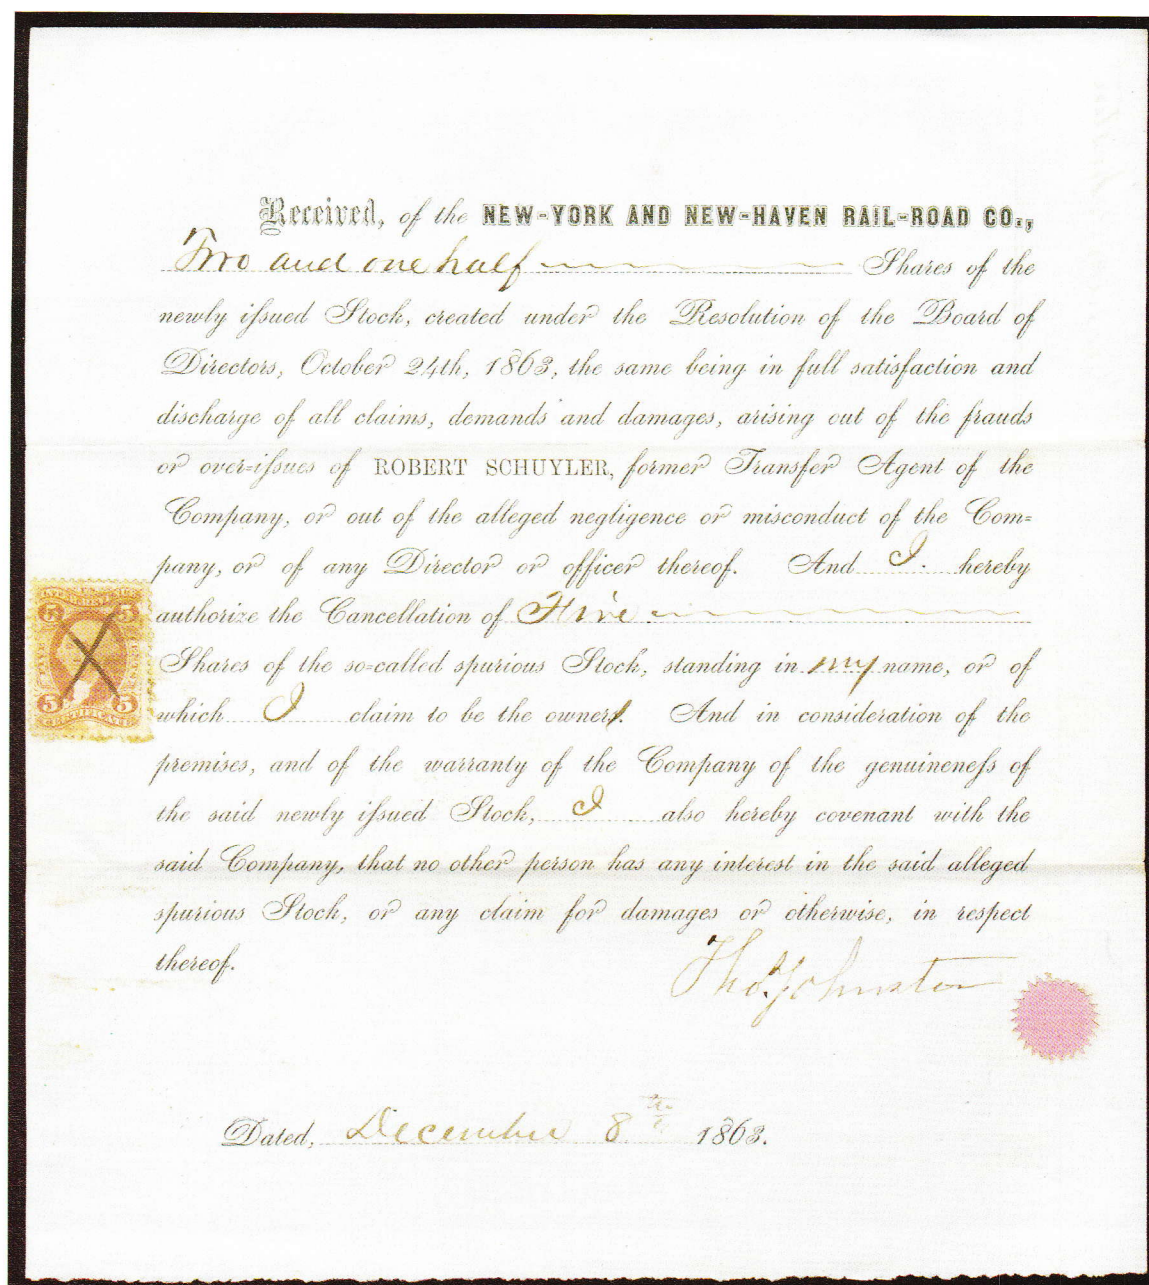 Received, of the NEW-YORK AND NEW-HAVEN RAIL-ROAD CO.,
Two and one half Shares of the
newly issued Stock, created under the Resolution of the Board of
Directors, October 24th, 1863, the same being in full satisfaction and
discharge of all claims, demands and damages, arising out of the frauds
or over=issues of ROBERT SCHUYLER, former Transfer Agent of the
Company, or out of the alleged negligence or misconduct of the Com=
pany, or of any Director or officer thereof. And I hereby
authorize the Cancellation of Five
Shares of the so=called spurious Stock, standing in my name, or of
which I claim to be the owner. And in consideration of the
premises, and of the warranty of the Company of the genuineness of
the said newly issued Stock, I also hereby covenant with the
said Company, that no other person has any interest in the said alleged
spurious Stock, or any claim for damages or otherwise, in respect
thereof.
Tho. Johnston
Dated, December 8th 1863.
5 5
5 5
CERTIFICATE